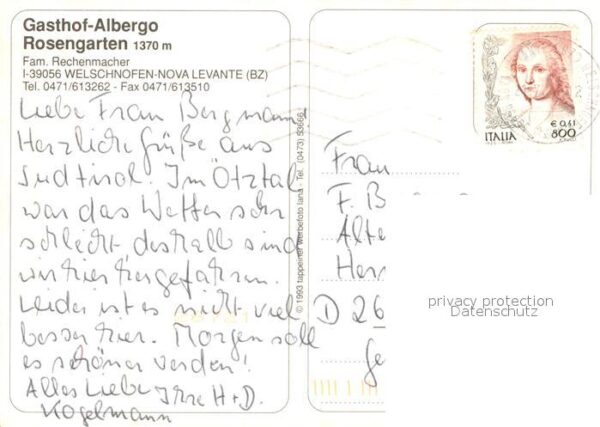 Gasthof-Albergo
Rosengarten 1370 m
Fam. Rechenmacher
I-39056 WELSCHNOFEN-NOVA LEVANTE (BZ)
Tel. 0471/613262 - Fax 0471/613510
Liebe Frau Bergmann
Herzliche Grüße aus
Südtirol. Im Ötztal
war das Wetter sehr
schlecht deshalb sind
wir hier hergefahren.
Leider ist es nicht viel
besser hier. Morgen soll
es schöner werden!
Alles Liebe Ihre H+D.
Kogelmann
© 1993 tappeiner werbefoto lana - Tel. (0473) 53666
€ 0,41
ITALIA 800
Frau
F. B
Alte
Her
D 26
Ge
privacy protection
Datenschutz